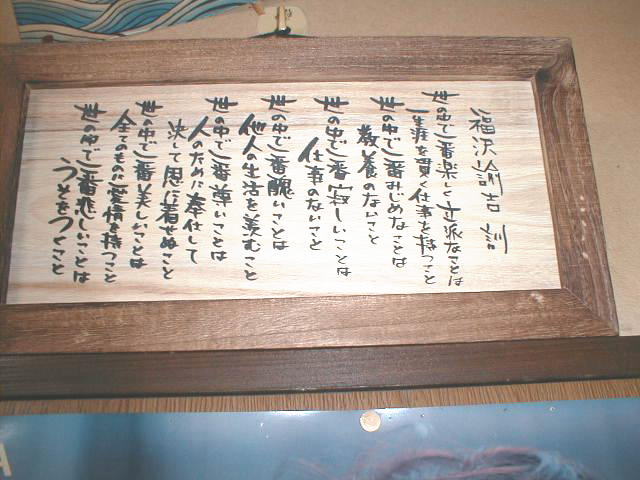 福沢諭吉訓
世の中で一番楽しく立派なことは
一生涯を貫く仕事を持つこと
世の中で一番みじめなことは
教養のないこと
世の中で一番寂しいことは
仕事のないこと
世の中で一番醜いことは
他人の生活を羨むこと
世の中で一番尊いことは
人のために奉仕して
決して恩に着せぬこと
世の中で一番美しいことは
全てのものに愛情を持つこと
世の中で一番悲しいことは
うそをつくこと
A